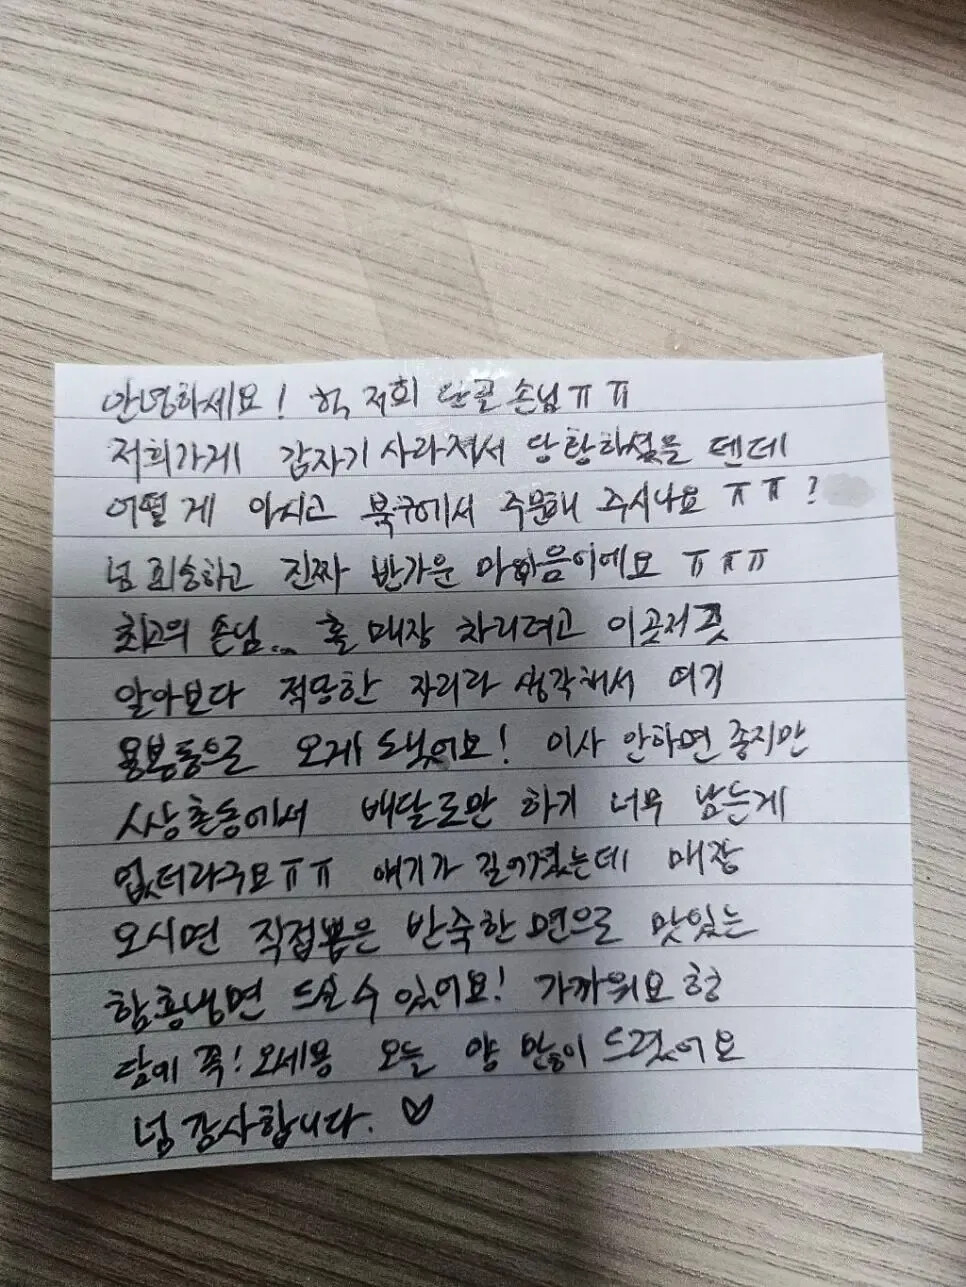 안녕하세요! 헉, 저희 단골 손님ㅠㅠ
저희가게 갑자기 사라져서 당황하셨을 텐데
어떻게 아시고 북구에서 주문해 주시나요 ㅠㅠ?
넘 죄송하고 진짜 반가운 마음이에요 ㅠㅠㅠ
최고의 손님... 홀 매장 차리려고 이곳저곳
알아보다 적당한 자리라 생각해서 여기
용봉동으로 오게 됬어요! 이사 안하면 좋지만
사상촌동에서 배달로만 하기 너무 남는게
없더라구요ㅠㅠ 얘기가 길어졌는데 매장
오시면 직접뽑은 반죽한 면으로 맛있는
함흥냉면 드실 수 있어요! 가까워요 헝
담에 꼭! 오세용 오늘 양 많이 드렸어요
넘 감사합니다. ♡